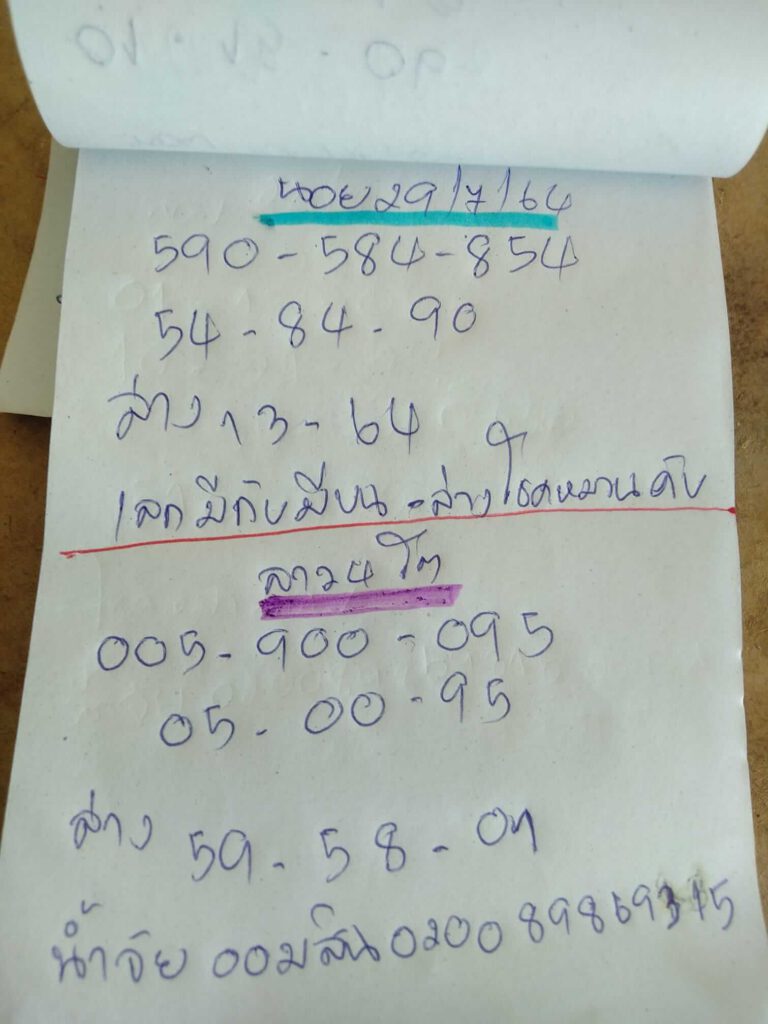 นอย 29/7/64
590 - 584 - 854
54 - 84 - 90
ล่าง 13 - 64
เลกมีทับมียน - ล่าง โชคหมานคับ
ลาว 4 โต
005 - 900 - 095
05 - 00 - 95
ล่าง 59 - 58 - 07
น้ำจัย ออมสิน 0200 89869315